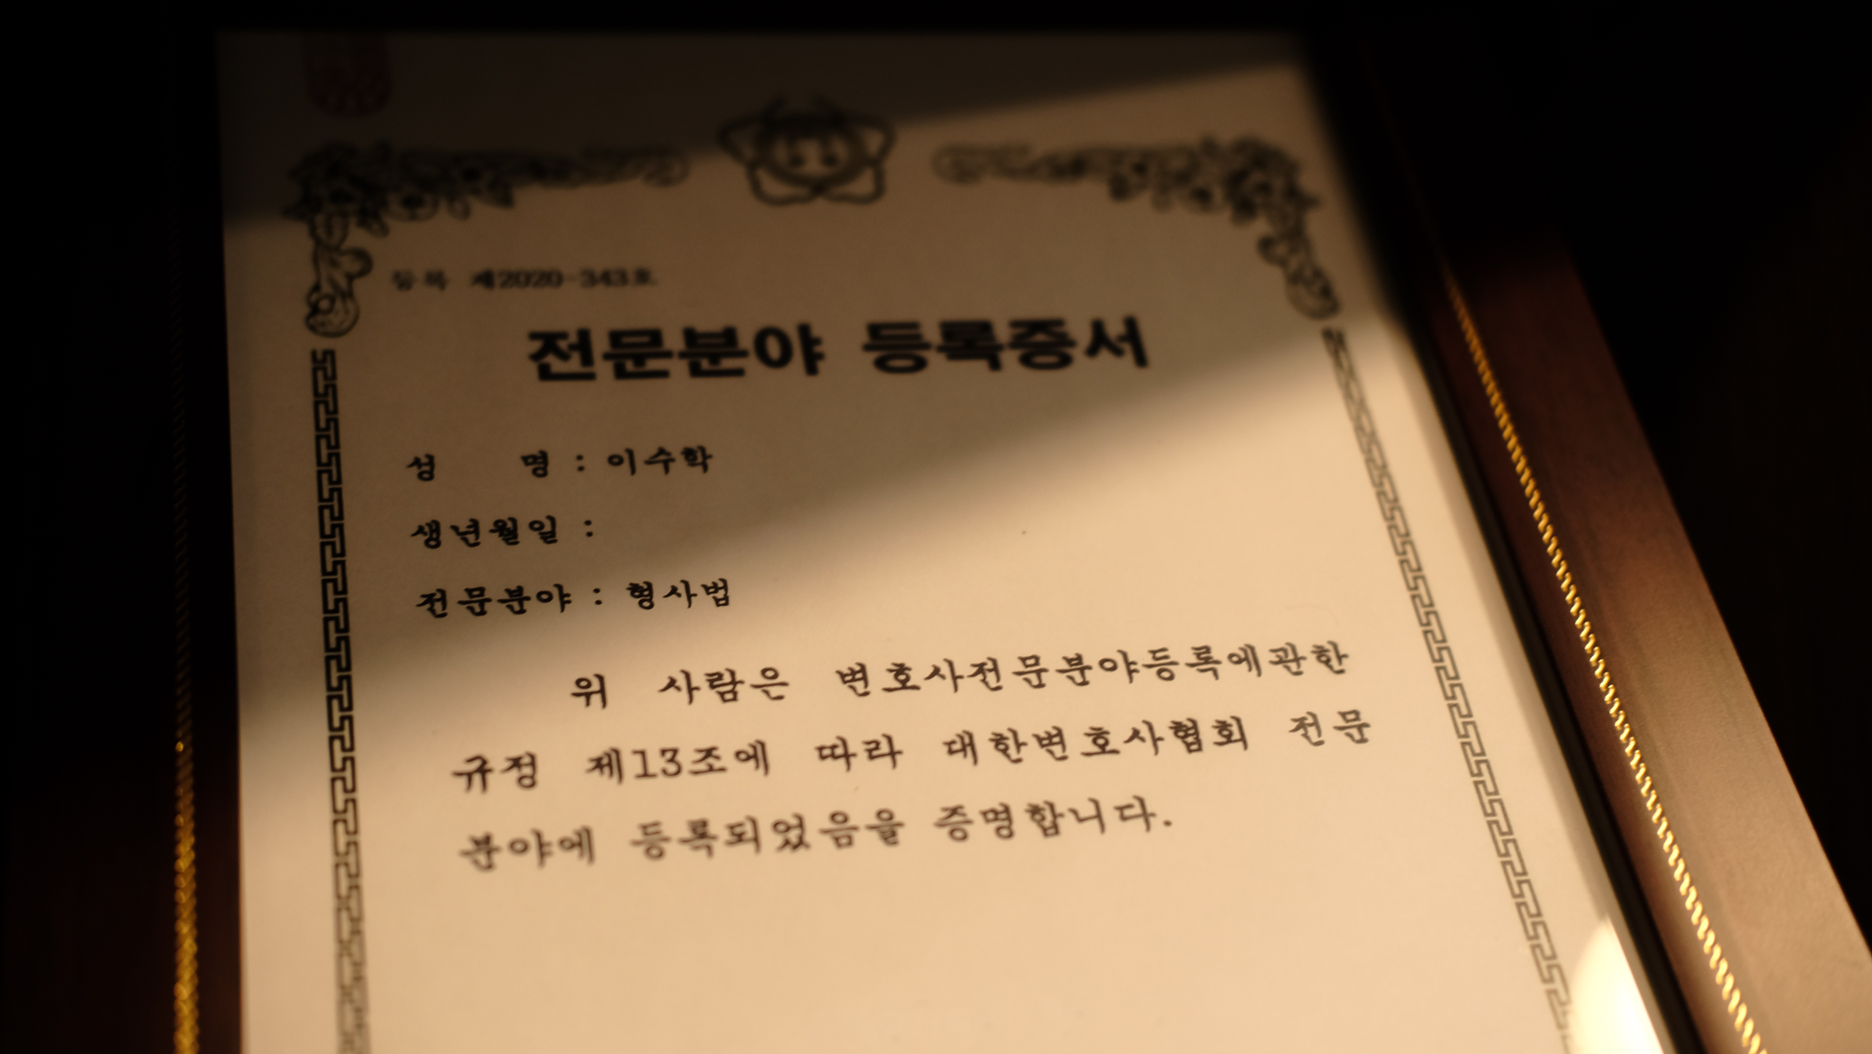 등록 제2020-343호
전문분야 등록증서
성 명 : 이수학
생년월일 :
전문분야 : 형사법
위 사람은 변호사전문분야등록에관한
규정 제13조에 따라 대한변호사협회 전문
분야에 등록되었음을 증명합니다.